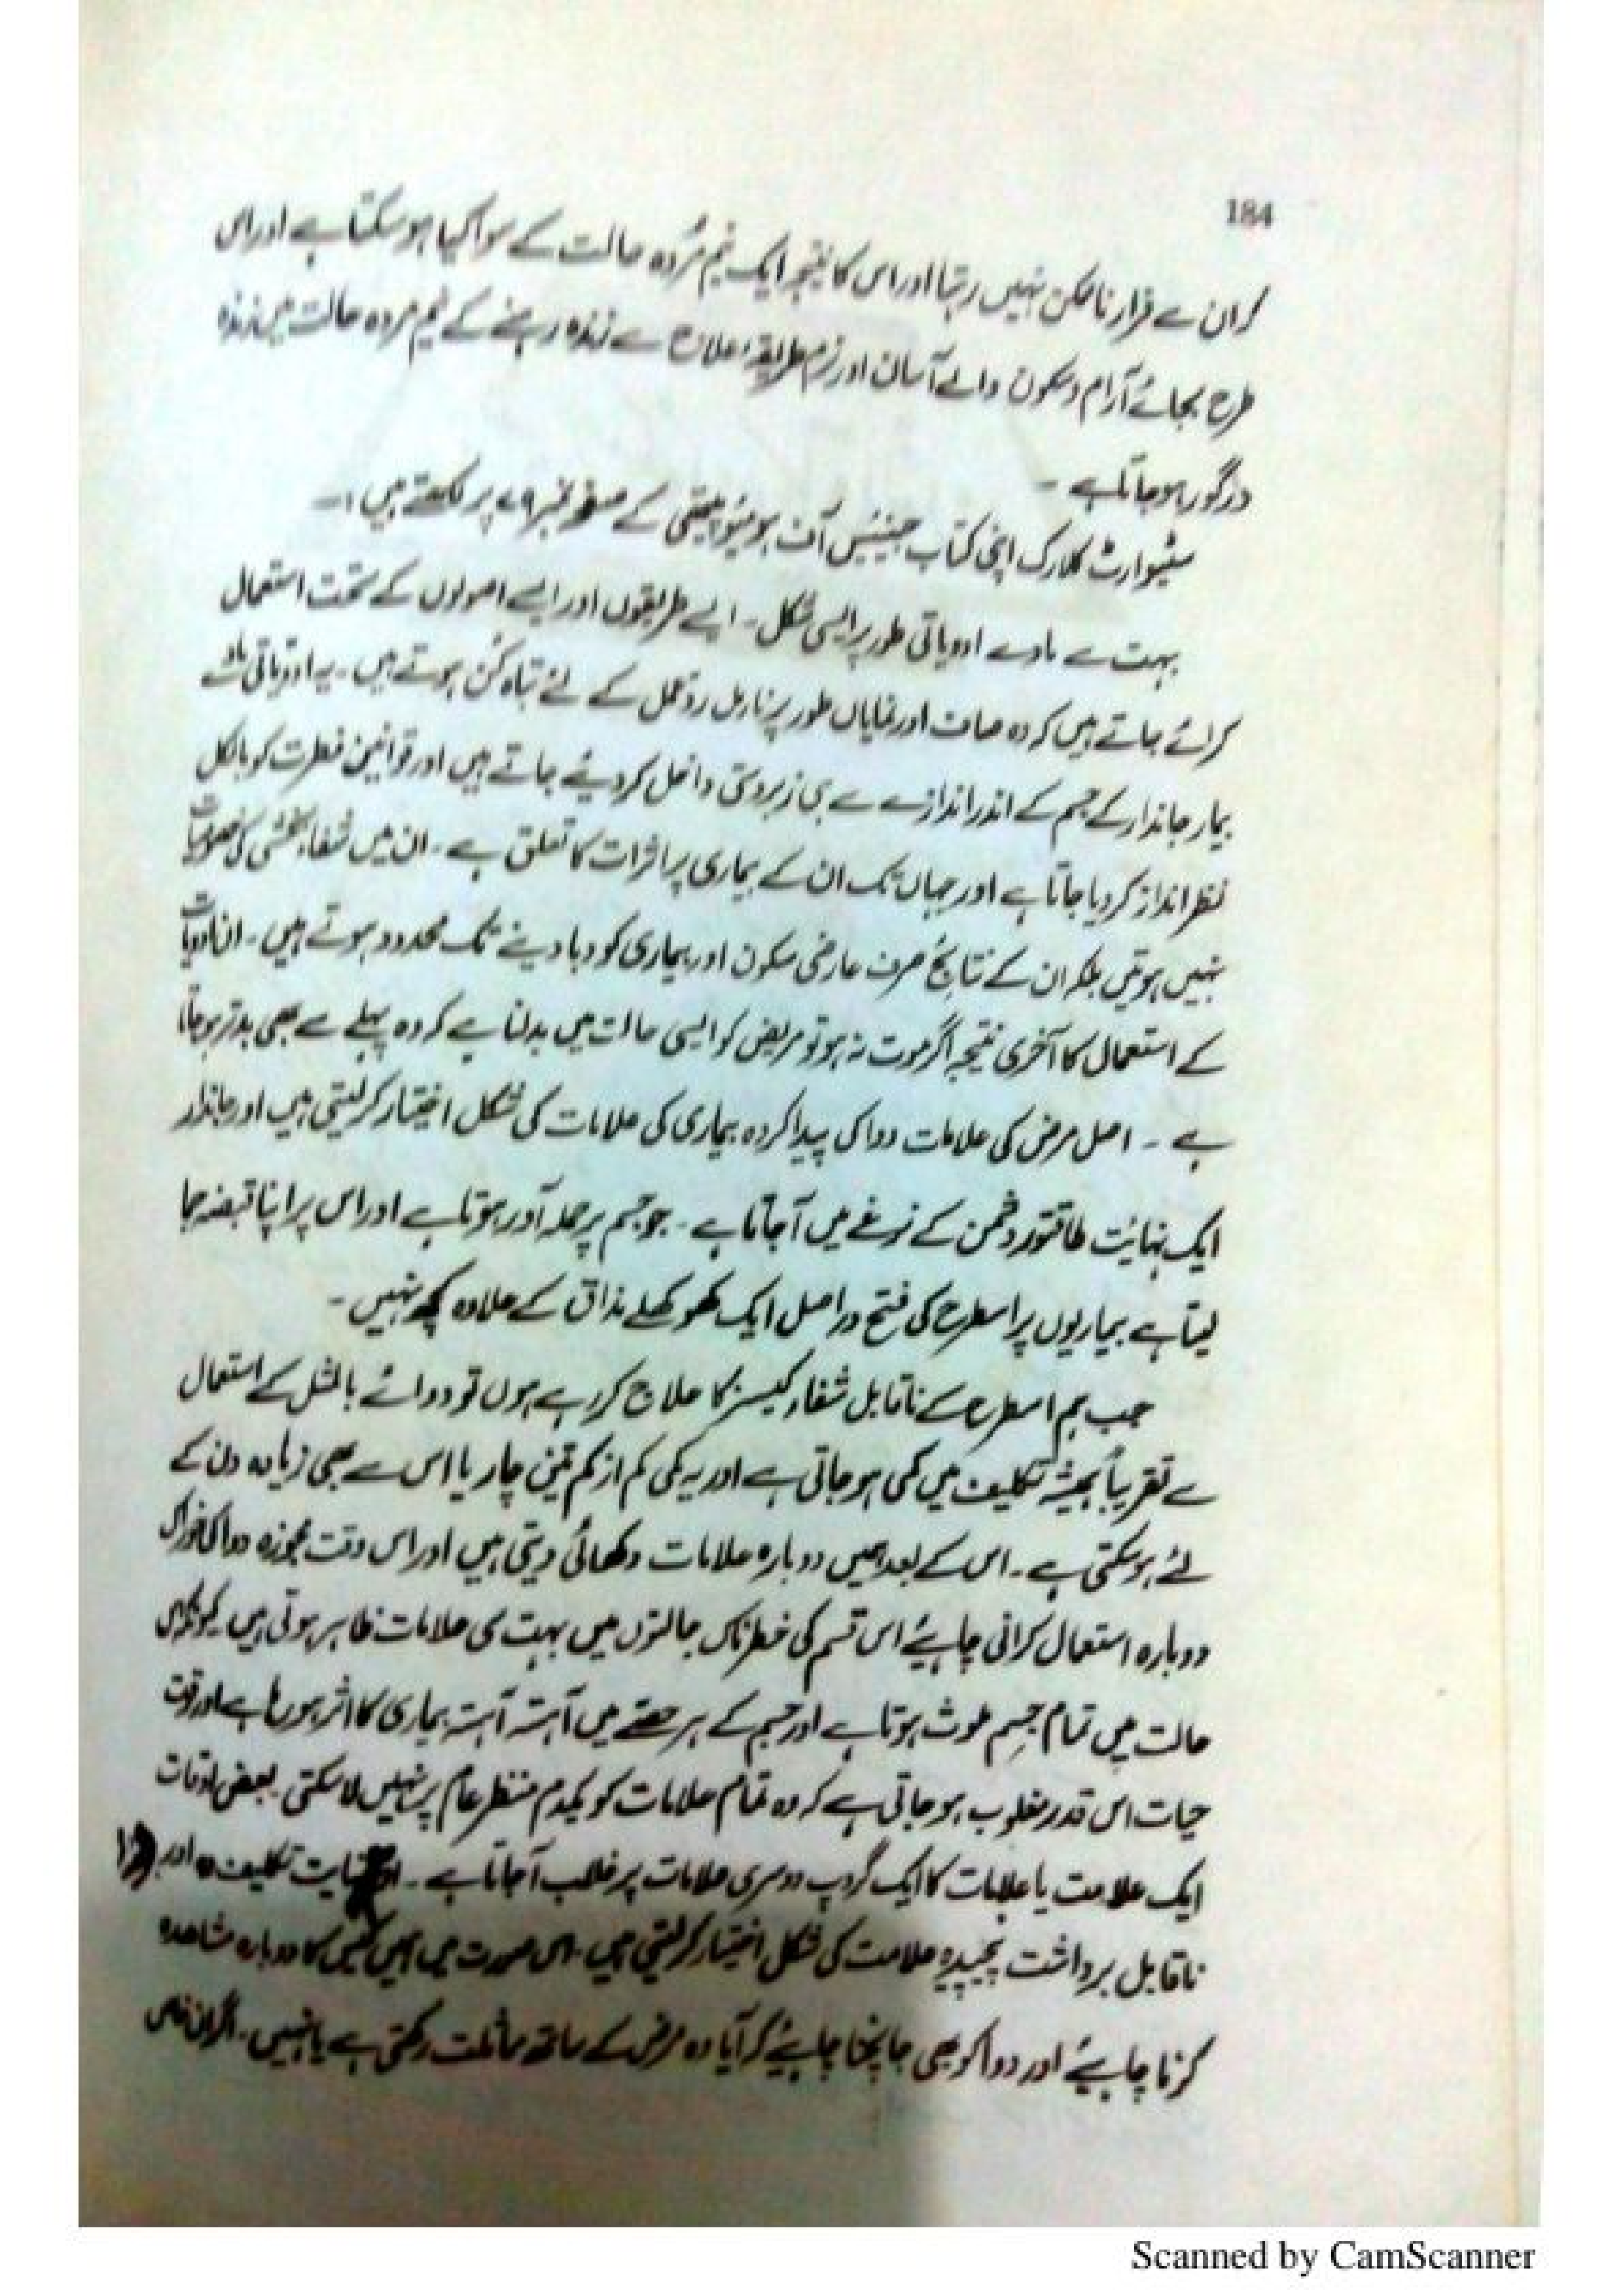 184
کران سے فرار ناممکن نہیں رہتا اور اس کا نتیجہ ایک نیم مُردہ حالت کے سوا کیا ہو سکتا ہے اور اس
طرح بجائے آرام و سکون والے آسان اور نرم طریقۂ علاج سے زندہ رہنے کے نیم مردہ حالت میں زندہ
درگور ہو جاتا ہے ۔
سٹیوارٹ کلارک اپنی کتاب جینیئس آف ہومیوپیتھی کے صفحہ نمبر ۷۹ پر لکھتے ہیں :۔
بہت سے مادے ادویاتی طور پر ایسی شکل ۔ ایسے طریقوں اور ایسے اصولوں کے تحت استعمال
کرائے جاتے ہیں کہ وہ صاف اور نمایاں طور پر نارمل ردعمل کے لئے تباہ کُن ہوتے ہیں ۔ یہ ادویاتی مادے
بیمار جاندار کے جسم کے اندر اندازے سے ہی زبردستی داخل کر دیئے جاتے ہیں اور قوانین فطرت کو بالکل
نظر انداز کر دیا جاتا ہے اور جہاں تک ان کے بیماری پر اثرات کا تعلق ہے ۔ ان میں شفا بخشی کی خصوصیات
نہیں ہوتیں بلکہ ان کے نتائج صرف عارضی سکون اور بیماری کو دبا دینے تک محدود ہوتے ہیں ۔ ان ادویات
کے استعمال کا آخری نتیجہ اگر موت نہ ہو تو مریض کو ایسی حالت میں بدلنا ہے کہ وہ پہلے سے بھی بدتر ہو جاتا
ہے ۔ اصل مرض کی علامات دوا کی پیدا کردہ بیماری کی علامات کی شکل اختیار کر لیتی ہیں اور جاندار
ایک نہائت طاقتور دشمن کے نرغے میں آ جاتا ہے ۔ جو جسم پر حملہ آور ہوتا ہے اور اس پر اپنا قبضہ جما
لیتا ہے بیماریوں پر اسطرح کی فتح دراصل ایک کھوکھلے مذاق کے علاوہ کچھ نہیں ۔
جب ہم اسطرح کے ناقابل شفاء کیسز کا علاج کر رہے ہوں تو دوائے بالمثل کے استعمال
سے تقریباً ہمیشہ تکلیف میں کمی ہو جاتی ہے اور یہ کمی کم از کم تین چار یا اس سے بھی زیادہ دن کے
لئے ہو سکتی ہے ۔ اس کے بعد ہمیں دوبارہ علامات دکھائی دیتی ہیں اور اس وقت مجوزہ دوا کی خوراک
دوبارہ استعمال کرانی چاہیئے اس قسم کی خطرناک حالتوں میں بہت سی علامات ظاہر ہوتی ہیں کیونکہ اس
حالت میں تمام جسم ملوث ہوتا ہے اور جسم کے ہر حصّے میں آہستہ آہستہ بیماری کا اثر ہو رہا ہے اور قوت
حیات اس قدر مغلوب ہو جاتی ہے کہ وہ تمام علامات کو یکدم منظرعام پر نہیں لا سکتی بعض اوقات
ایک علامت یا علامات کا ایک گروپ دوسری علامات پر غالب آ جاتا ہے ۔ نہایت تکلیف دہ اور
ناقابل برداشت پیچیدہ علامت کی شکل اختیار کر لیتی ہیں ۔ اس صورت میں ہمیں کیس کا دوبارہ مشاہدہ
کرنا چاہیئے اور دوا کو بھی جانچنا چاہیئے کہ آیا وہ مرض کے ساتھ مماثلت رکھتی ہے یا نہیں ۔ اگر ان
Scanned by CamScanner